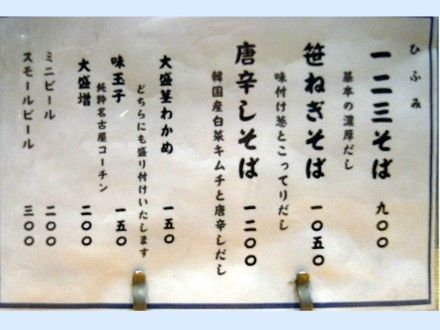 ひふみ
一二三そば 九〇〇
基本の濃厚だし
笹ねぎそば 一〇五〇
味付け葱とこってりだし
唐辛しそば 一二〇〇
韓国産白菜キムチと唐辛しだし
大盛茎わかめ 一五〇
どちらにも盛り付けいたします
味玉子 一五〇
純粋名古屋コーチン
大盛増 二〇〇
ミニビール 二〇〇
スモールビール 三〇〇